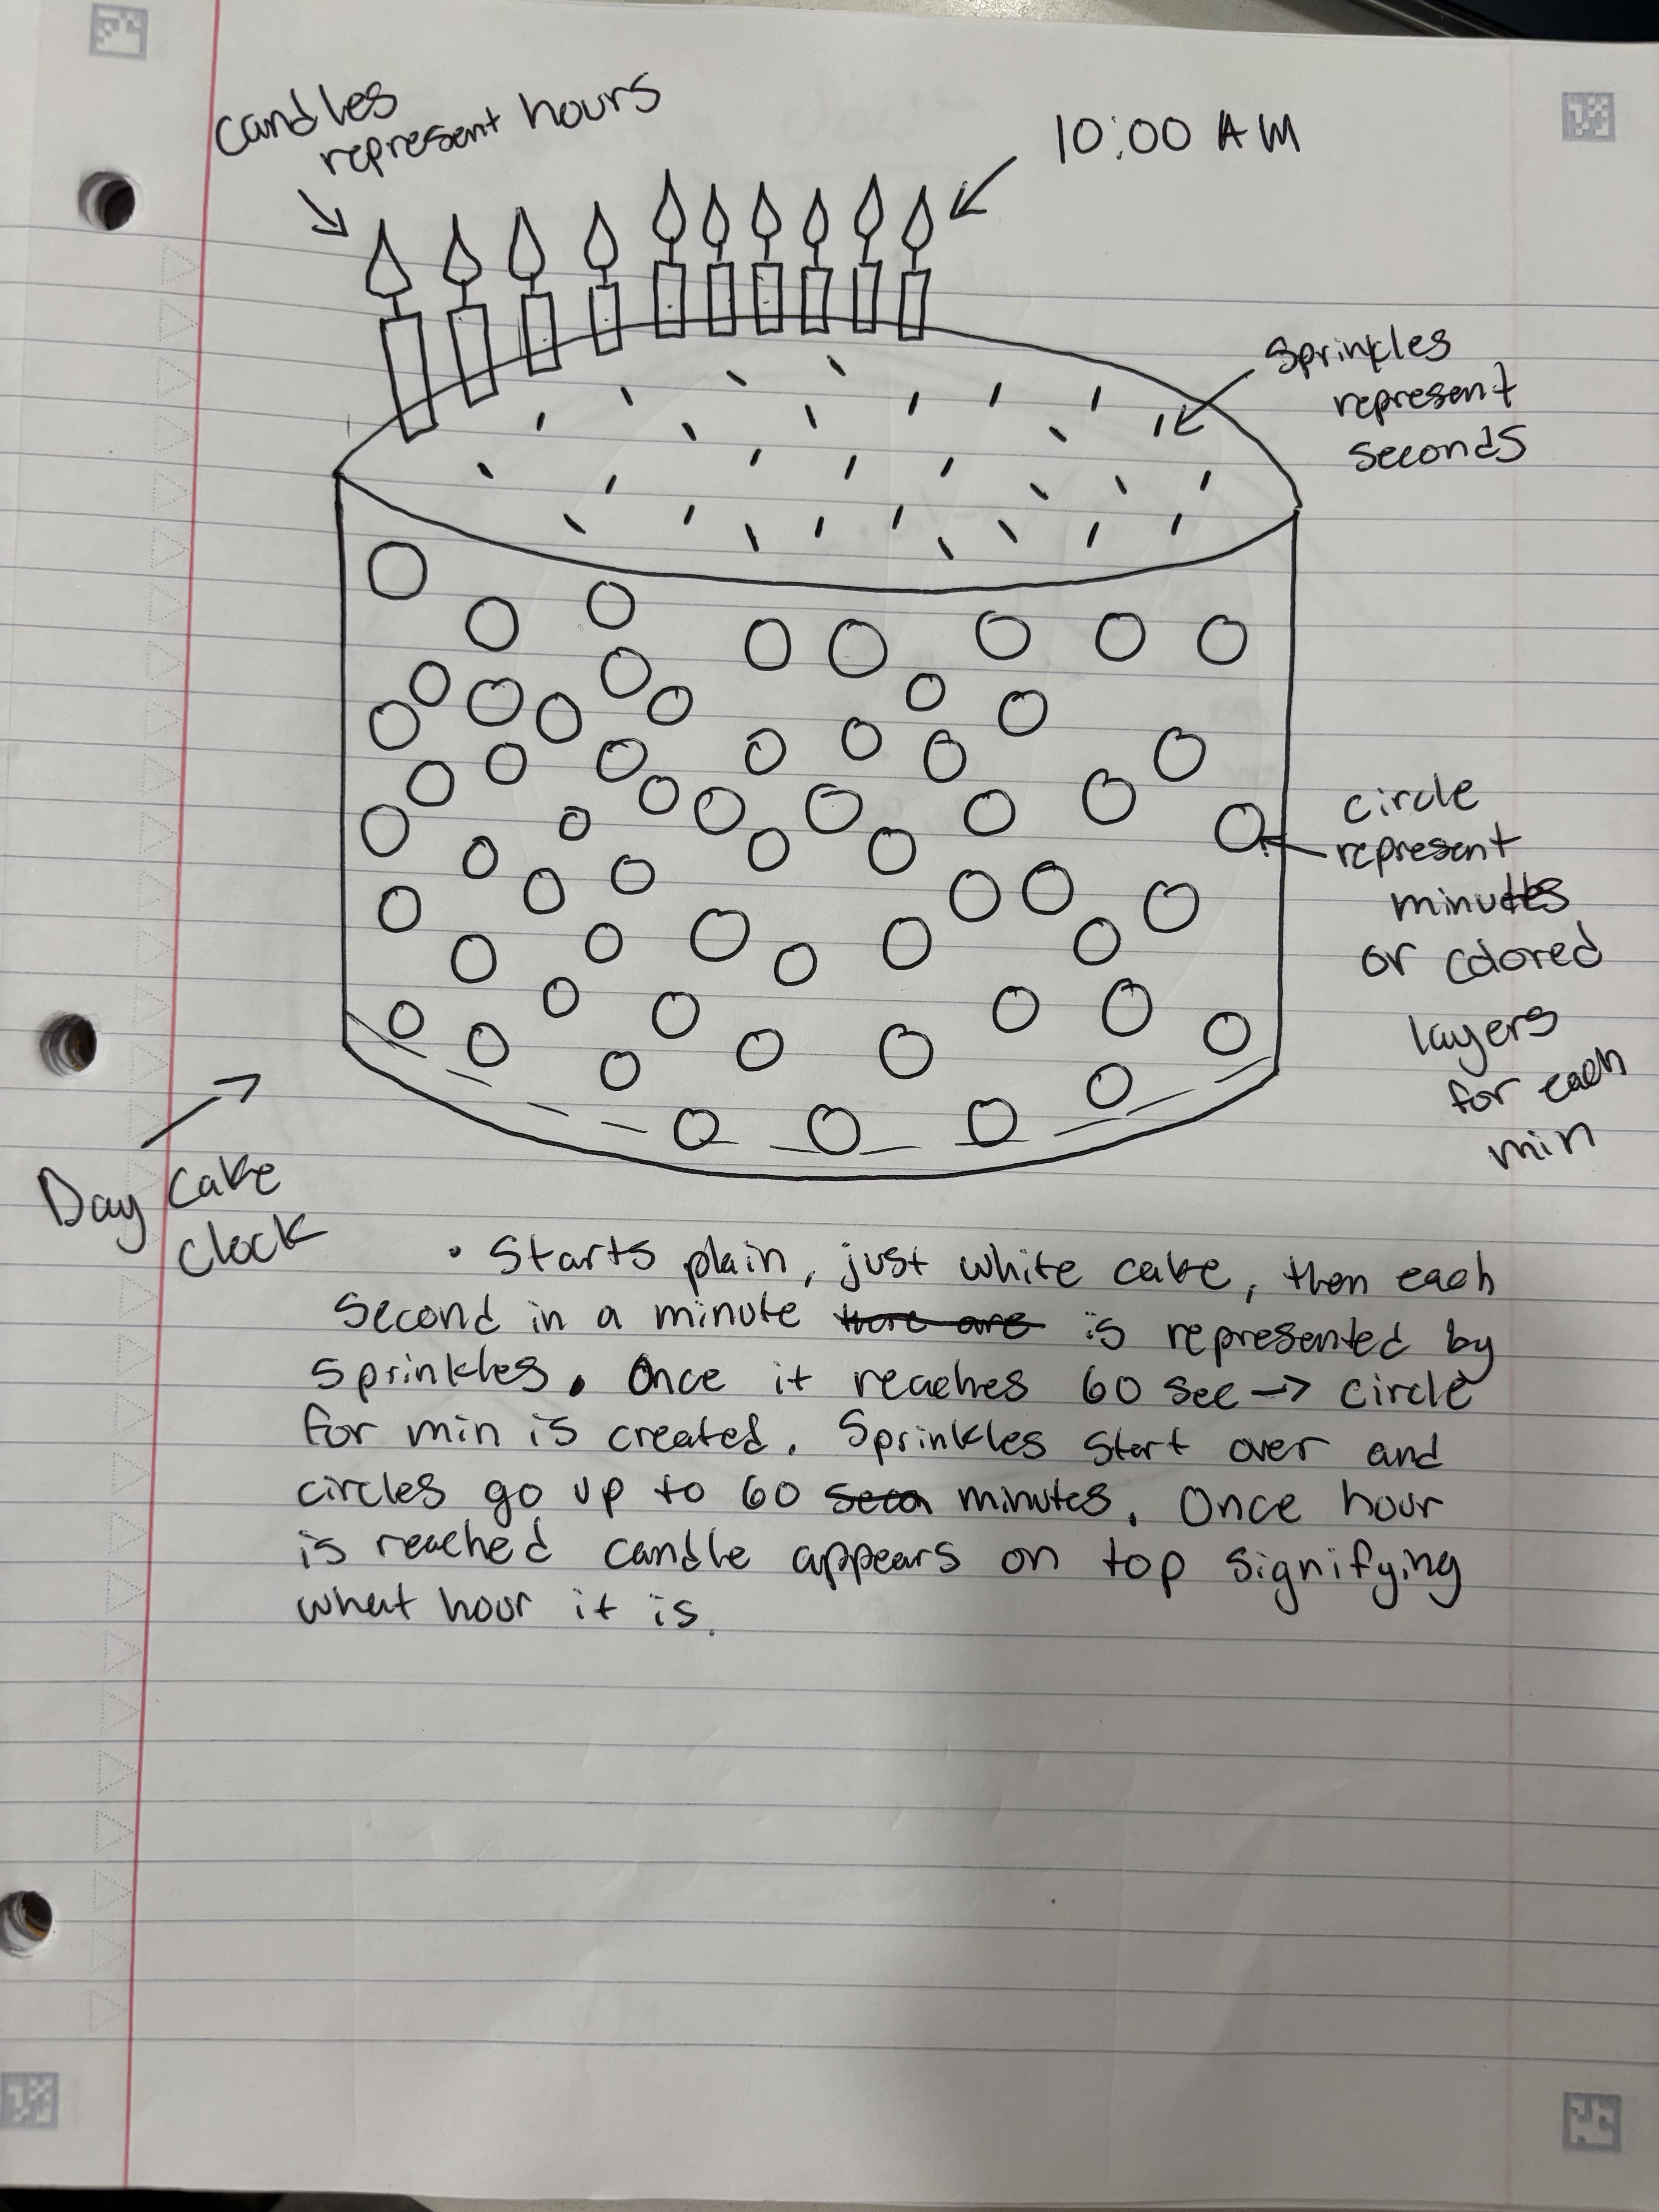 Candles
represent hours
10:00 AM
Sprinkles
represent
seconds
circle
represent
minuttes
or colored
layers
for each
min
Day Cake
Clock
• Starts plain, just white cake, then each
second in a minute there are is represented by
sprinkles. Once it reaches 60 sec → circle
for min is created. Sprinkles start over and
circles go up to 60 secon minutes. Once hour
is reached candle appears on top signifying
what hour it is.